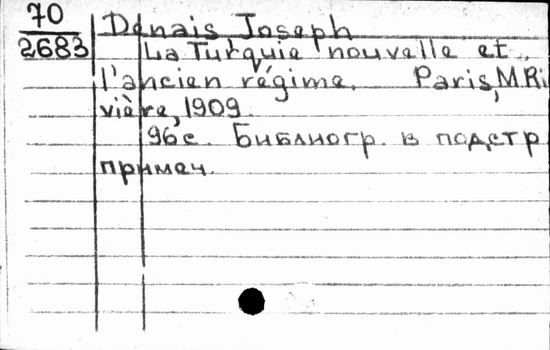 70
2683
Denais Joseph
La Turquie nouvelle et
l'ancien régime. Paris, M. Ri
vière, 1909.
96 с. Библиогр. в подстр.
примеч.